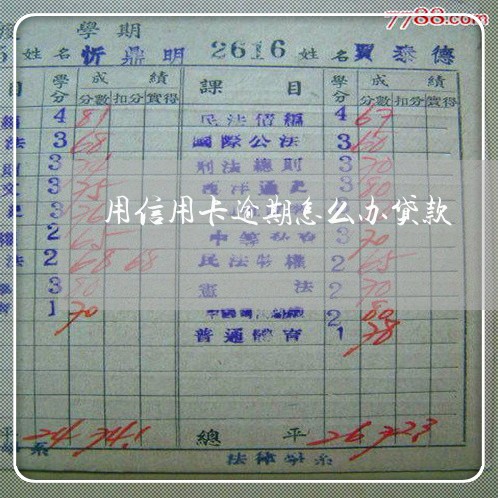 7788.com
學期
姓名 忻鼎明 2616 姓名 賈泰德
目 學分 成績 課目 學分 成績
分數 扣分 實得 分數 扣分 實得
4 81 民法債編 4 67
法 3 68 國際公法 3 60
3 刑法總則 3 70
3 75 西洋通史 3 80
用信用卡逾期怎么办贷款
2 65 3 70
法 2 68 68 民法物權 2 65
3 80 憲法 2 70
1 70 2 80
普通體育 1 78
平 24 74.1 總平 26 72.3
系 法律學系